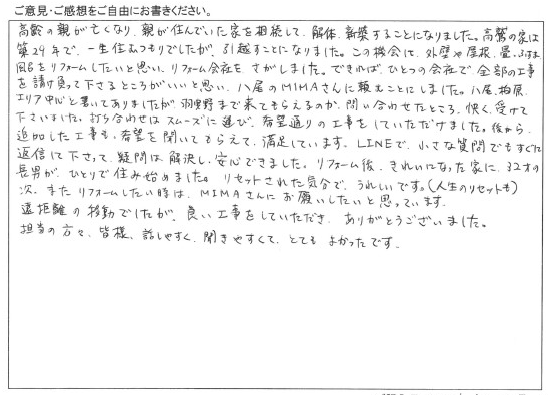 ご意見・ご感想をご自由にお書きください。
高齢の親が亡くなり、親が住んでいた家を相続して、解体、新築することになりました。高鷲の家は
築29年で、一生住むつもりでしたが、引越すことになりました。この機会に、外壁や屋根、畳、ふすま、
風呂をリフォームしたいと思い、リフォーム会社をさがしました。できれば、ひとつの会社で全部の工事
を請け負って下さるところがいいと思い、八尾のMIMAさんに頼むことにしました。八尾、柏原、
エリア中心と書いてありましたが、羽曳野まで来てもらえるのか、問い合わせたところ、快く受けて
下さいました。打ち合わせはスムーズに運び、希望通りの工事をしていただけました。後から、
追加した工事も、希望を聞いてもらえて、満足しています。LINEで、小さな質問でもすぐに
返信して下さって、疑問は解決し、安心できました。リフォーム後、きれいになった家に、32才の
長男が、ひとりで住み始めました。リセットされた気分で、うれしいです。(人生のリセットも)
次、またリフォームしたい時は、MIMAさんにお願いしたいと思っています。
遠距離の移動でしたが、良い工事をしていただき、ありがとうございました。
担当の方々、皆様、話しやすく、聞きやすくて、とてもよかったです。